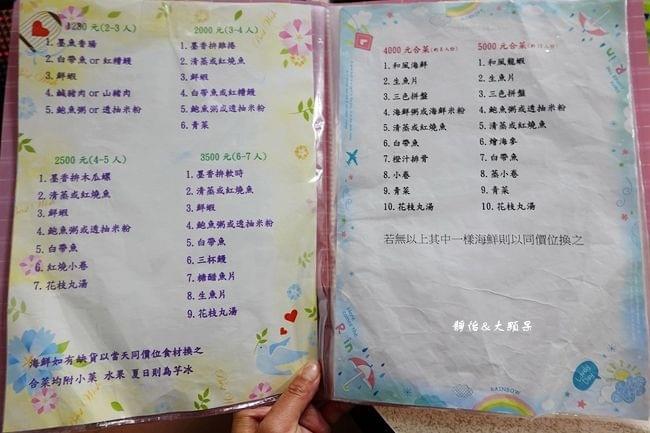 1280 元(2-3 人)
1. 墨魚香腸
2. 白帶魚 or 紅糟鰻
3. 鮮蝦
4. 鹹豬肉 or 山豬肉
5. 鮑魚粥 or 透抽米粉
2000 元(3-4 人)
1. 墨香拼雞捲
2. 清蒸或紅燒魚
3. 鮮蝦
4. 白帶魚或紅糟鰻
5. 鮑魚粥或透抽米粉
6. 青菜
2500 元(4-5 人)
1. 墨香拼木瓜螺
2. 清蒸或紅燒魚
3. 鮮蝦
4. 鮑魚粥或透抽米粉
5. 白帶魚
6. 紅燒小卷
7. 花枝丸湯
3500 元(6-7 人)
1. 墨香拼軟時
2. 清蒸或紅燒魚
3. 鮮蝦
4. 鮑魚粥或透抽米粉
5. 白帶魚
6. 三杯鰻
7. 糖醋魚片
8. 生魚片
9. 花枝丸湯
海鮮如有缺貨以當天同價位食材換之
合菜均附小菜 水果 夏日則為芋冰
4000 元合菜(約8人份)
1. 和風海鮮
2. 生魚片
3. 三色拼盤
4. 海鮮粥或海鮮米粉
5. 清蒸或紅燒魚
6. 白帶魚
7. 橙汁排骨
8. 小卷
9. 青菜
10. 花枝丸湯
5000 元合菜(約10人份)
1. 和風龍蝦
2. 生魚片
3. 三色拼盤
4. 鮑魚粥或透抽米粉
5. 清蒸或紅燒魚
6. 燴海參
7. 白帶魚
8. 蒸小卷
9. 青菜
10. 花枝丸湯
若無以上其中一樣海鮮則以同價位換之
靜怡&大顆呆
RAINBOW
Lovely Day